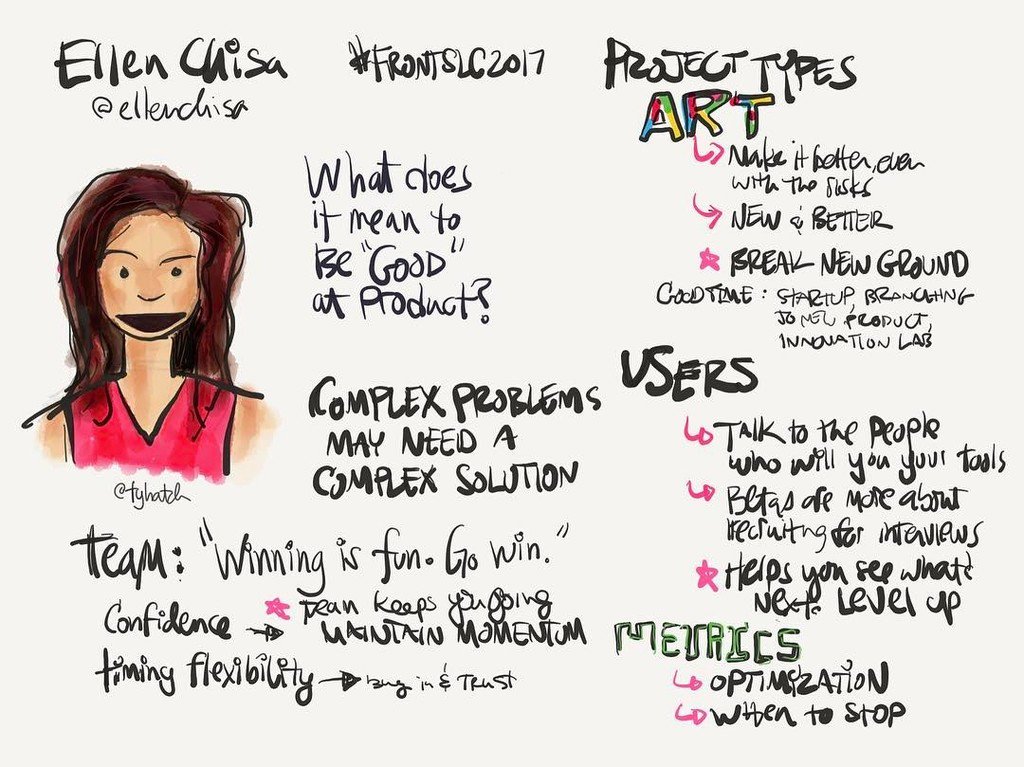 Ellen Chisa
@ellenchisa
#FRONTSLC2017
What does
it mean to
BE "GOOD"
at Product?
COMPLEX PROBLEMS
MAY NEED A
COMPLEX SOLUTION
@tyhatch
TEAM: "Winning is fun. Go win."
Confidence
Team keeps you going
MAINTAIN MOMENTUM
timing flexibility
buy in & TRUST
PROJECT TYPES
ART
Make it better, even
with the risks
NEW & BETTER
BREAK NEW GROUND
GOOD TIME: STARTUP, BRANCHING
TO NEW PRODUCT,
INNOVATION LAB
USERS
TALK to the People
who will you your tools
Betas are more about
recruiting for interviews
Helps you see what's
Next. LEVEL UP
METRICS
OPTIMIZATION
WHEN TO STOP